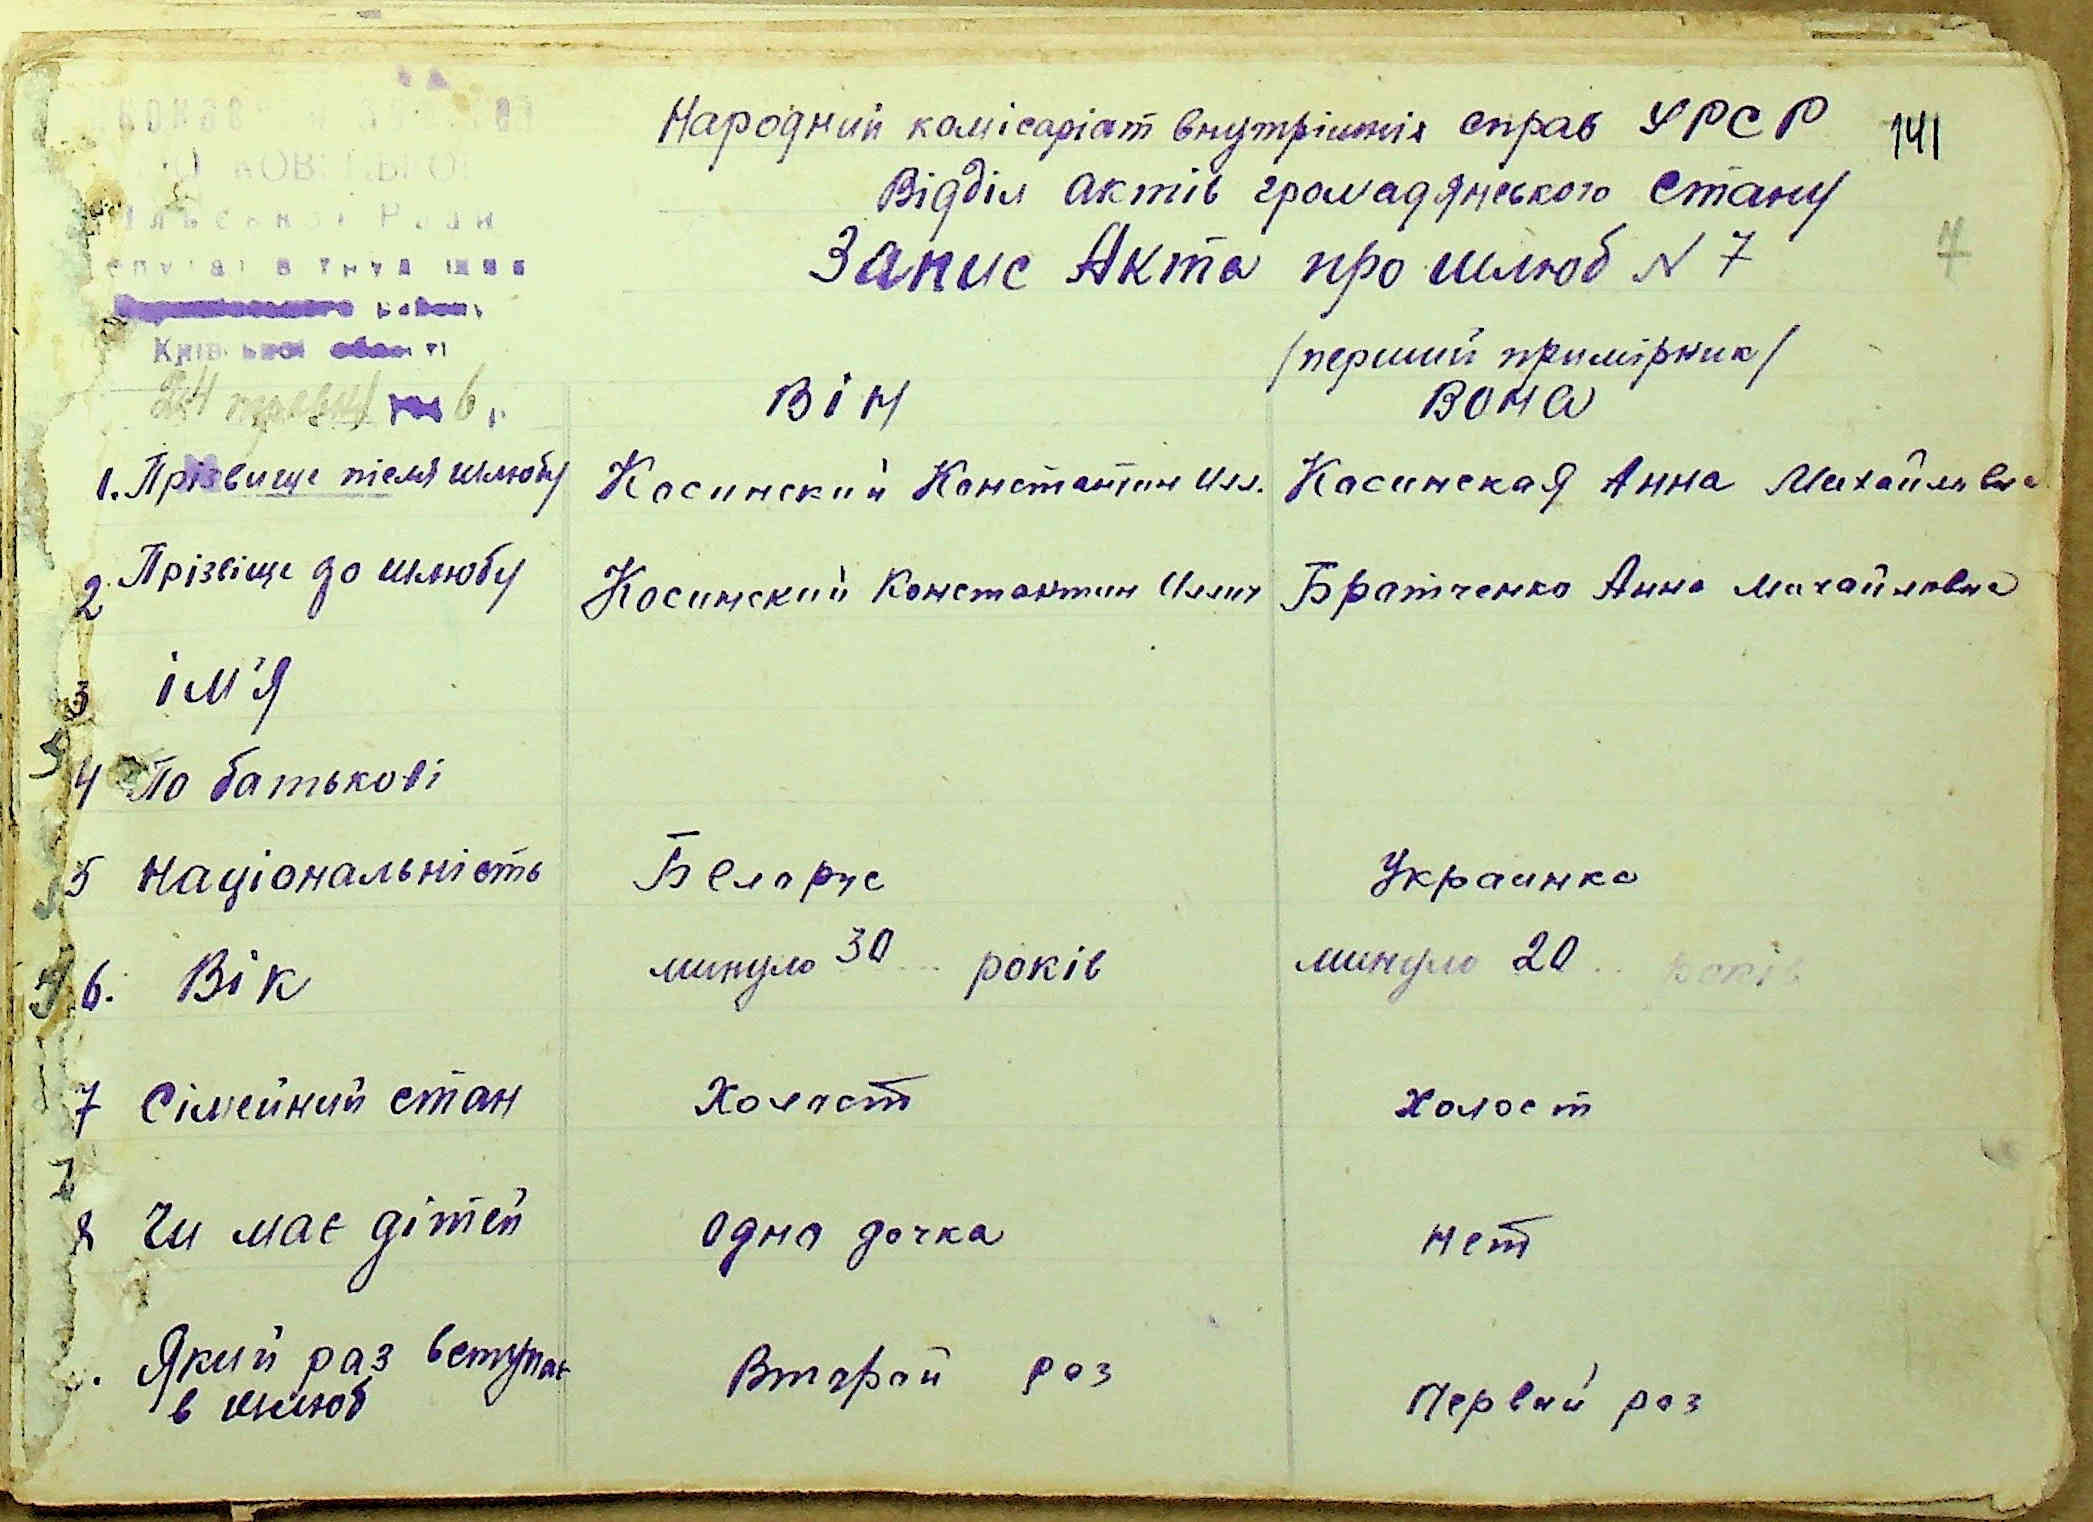 Народний комісаріат внутрішніх справ УРСР 141
Відділ актів громадянського стану
Запис Акта про шлюб N 7
/перший примірник/
Він Вона
1. Прізвище після шлюбу Косинский Константин Илл. Косинская Анна Михайловна
2 Прізвіще до шлюбу Косинский Константин Иллич Братченко Анна Михайловна
3 ім'я
4 По батькові
5 Національність Беларус Украинка
6. Вік минуло 30 років минуло 20 років
7 Сімейний стан Холост Холост
8 Чи має дітей Одна дочка Нет
Який раз вступає Второй раз Первый раз
в шлюб